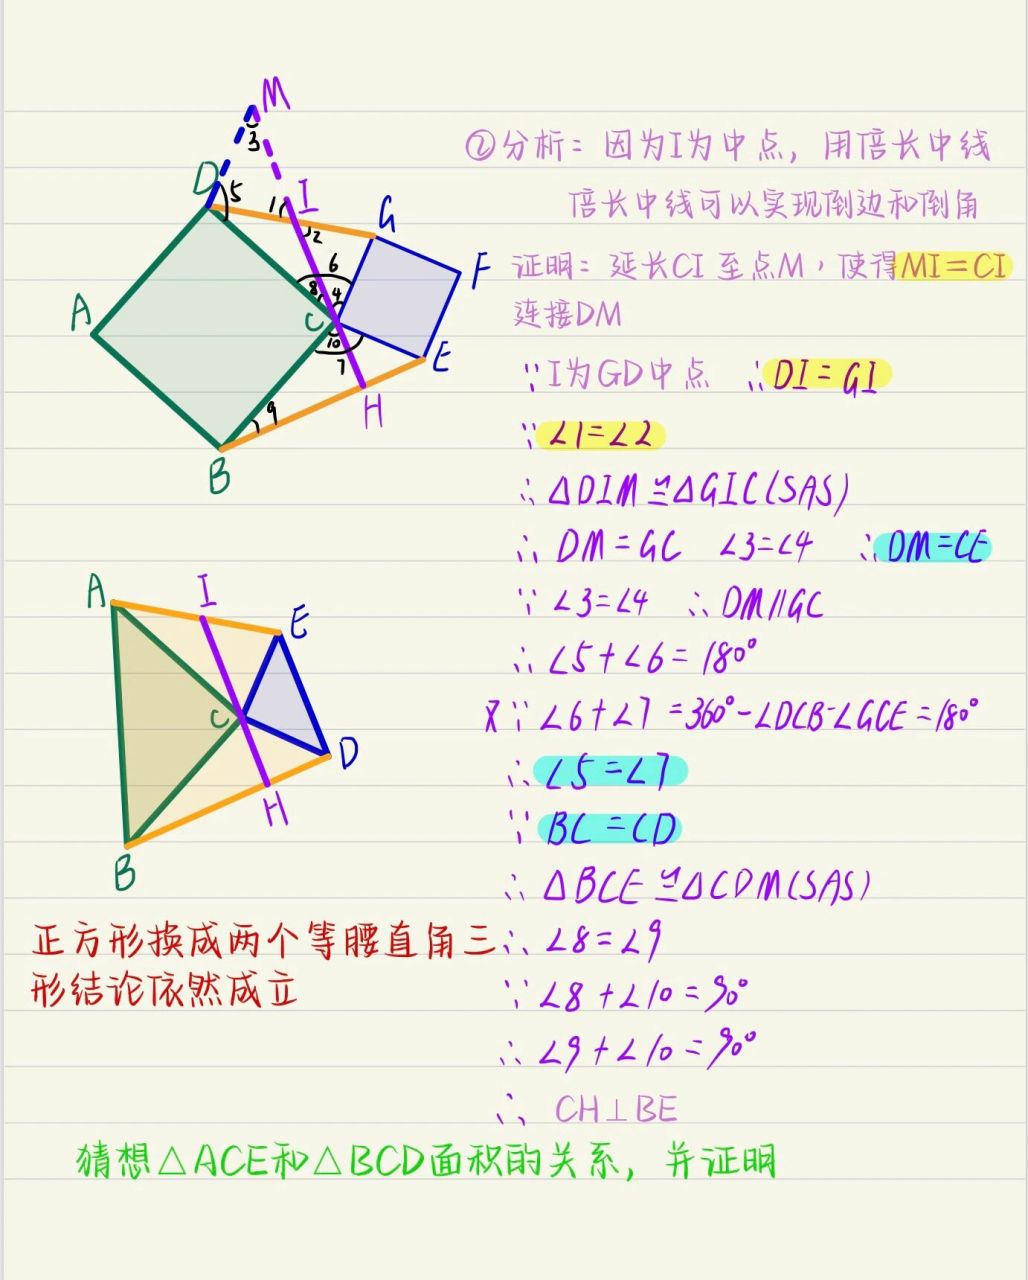 M
3
D
5
1
I
2
G
②分析：因为I为中点，用倍长中线
倍长中线可以实现倒边和倒角
6
8
4
F
A
C
证明：延长CI至点M，使得MI=CI
连接DM
10
7
E
9
H
B
∵I为GD中点 ∴DI=GI
∵∠1=∠2
∴△DIM≌△GIC(SAS)
∴DM=GC ∠3=∠4 ∴DM=CE
∵∠3=∠4 ∴DM∥GC
∴∠5+∠6=180°
又∵∠6+∠7=360°-∠DCB-∠GCE=180°
∴∠5=∠7
∵BC=CD
∴△BCE≌△CDM(SAS)
∴∠8=∠9
∵∠8+∠10=90°
∴∠9+∠10=90°
∴CH⊥BE
A
I
E
C
D
H
B
正方形换成两个等腰直角三
形结论依然成立
猜想△ACE和△BCD面积的关系，并证明